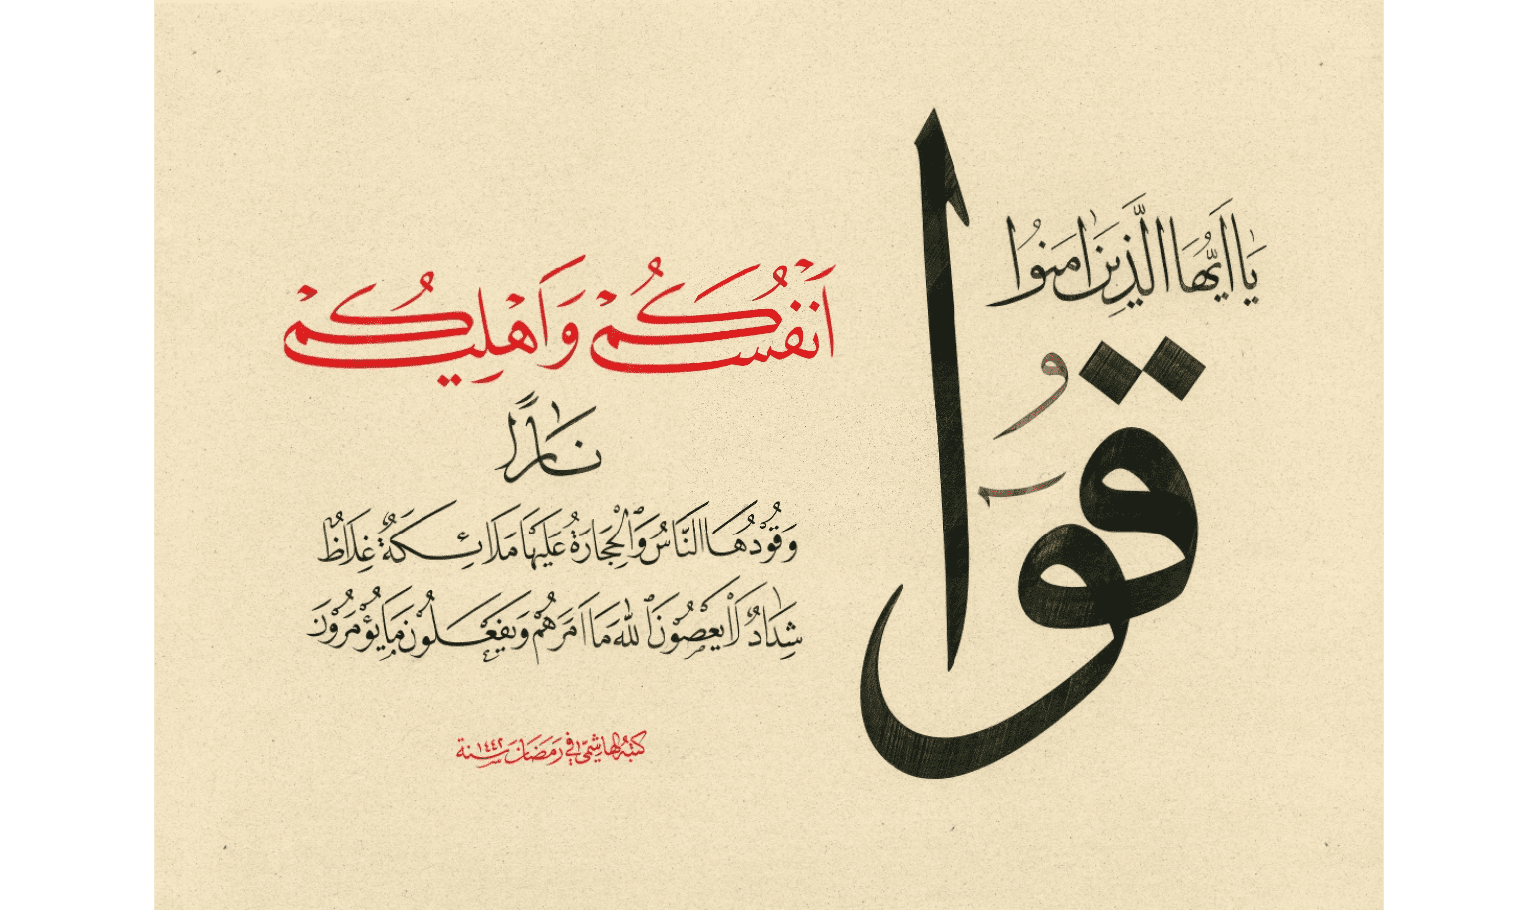 يَا أَيُّهَا الَّذِينَ اٰمَنُوا
قُوا
اَنْفُسَكُمْ وَاَهْلِيكُمْ
نَاراً
وَقُودُهَا النَّاسُ وَالْحِجَارَةُ عَلَيْهَا مَلَائِكَةٌ غِلَاظٌ
شِدَادٌ لَا يَعْصُونَ اللّٰهَ مَا اَمَرَهُمْ وَيَفْعَلُونَ مَا يُؤْمَرُونَ
كتبه الهاشمي في رمضان سنة ١٤٤٢